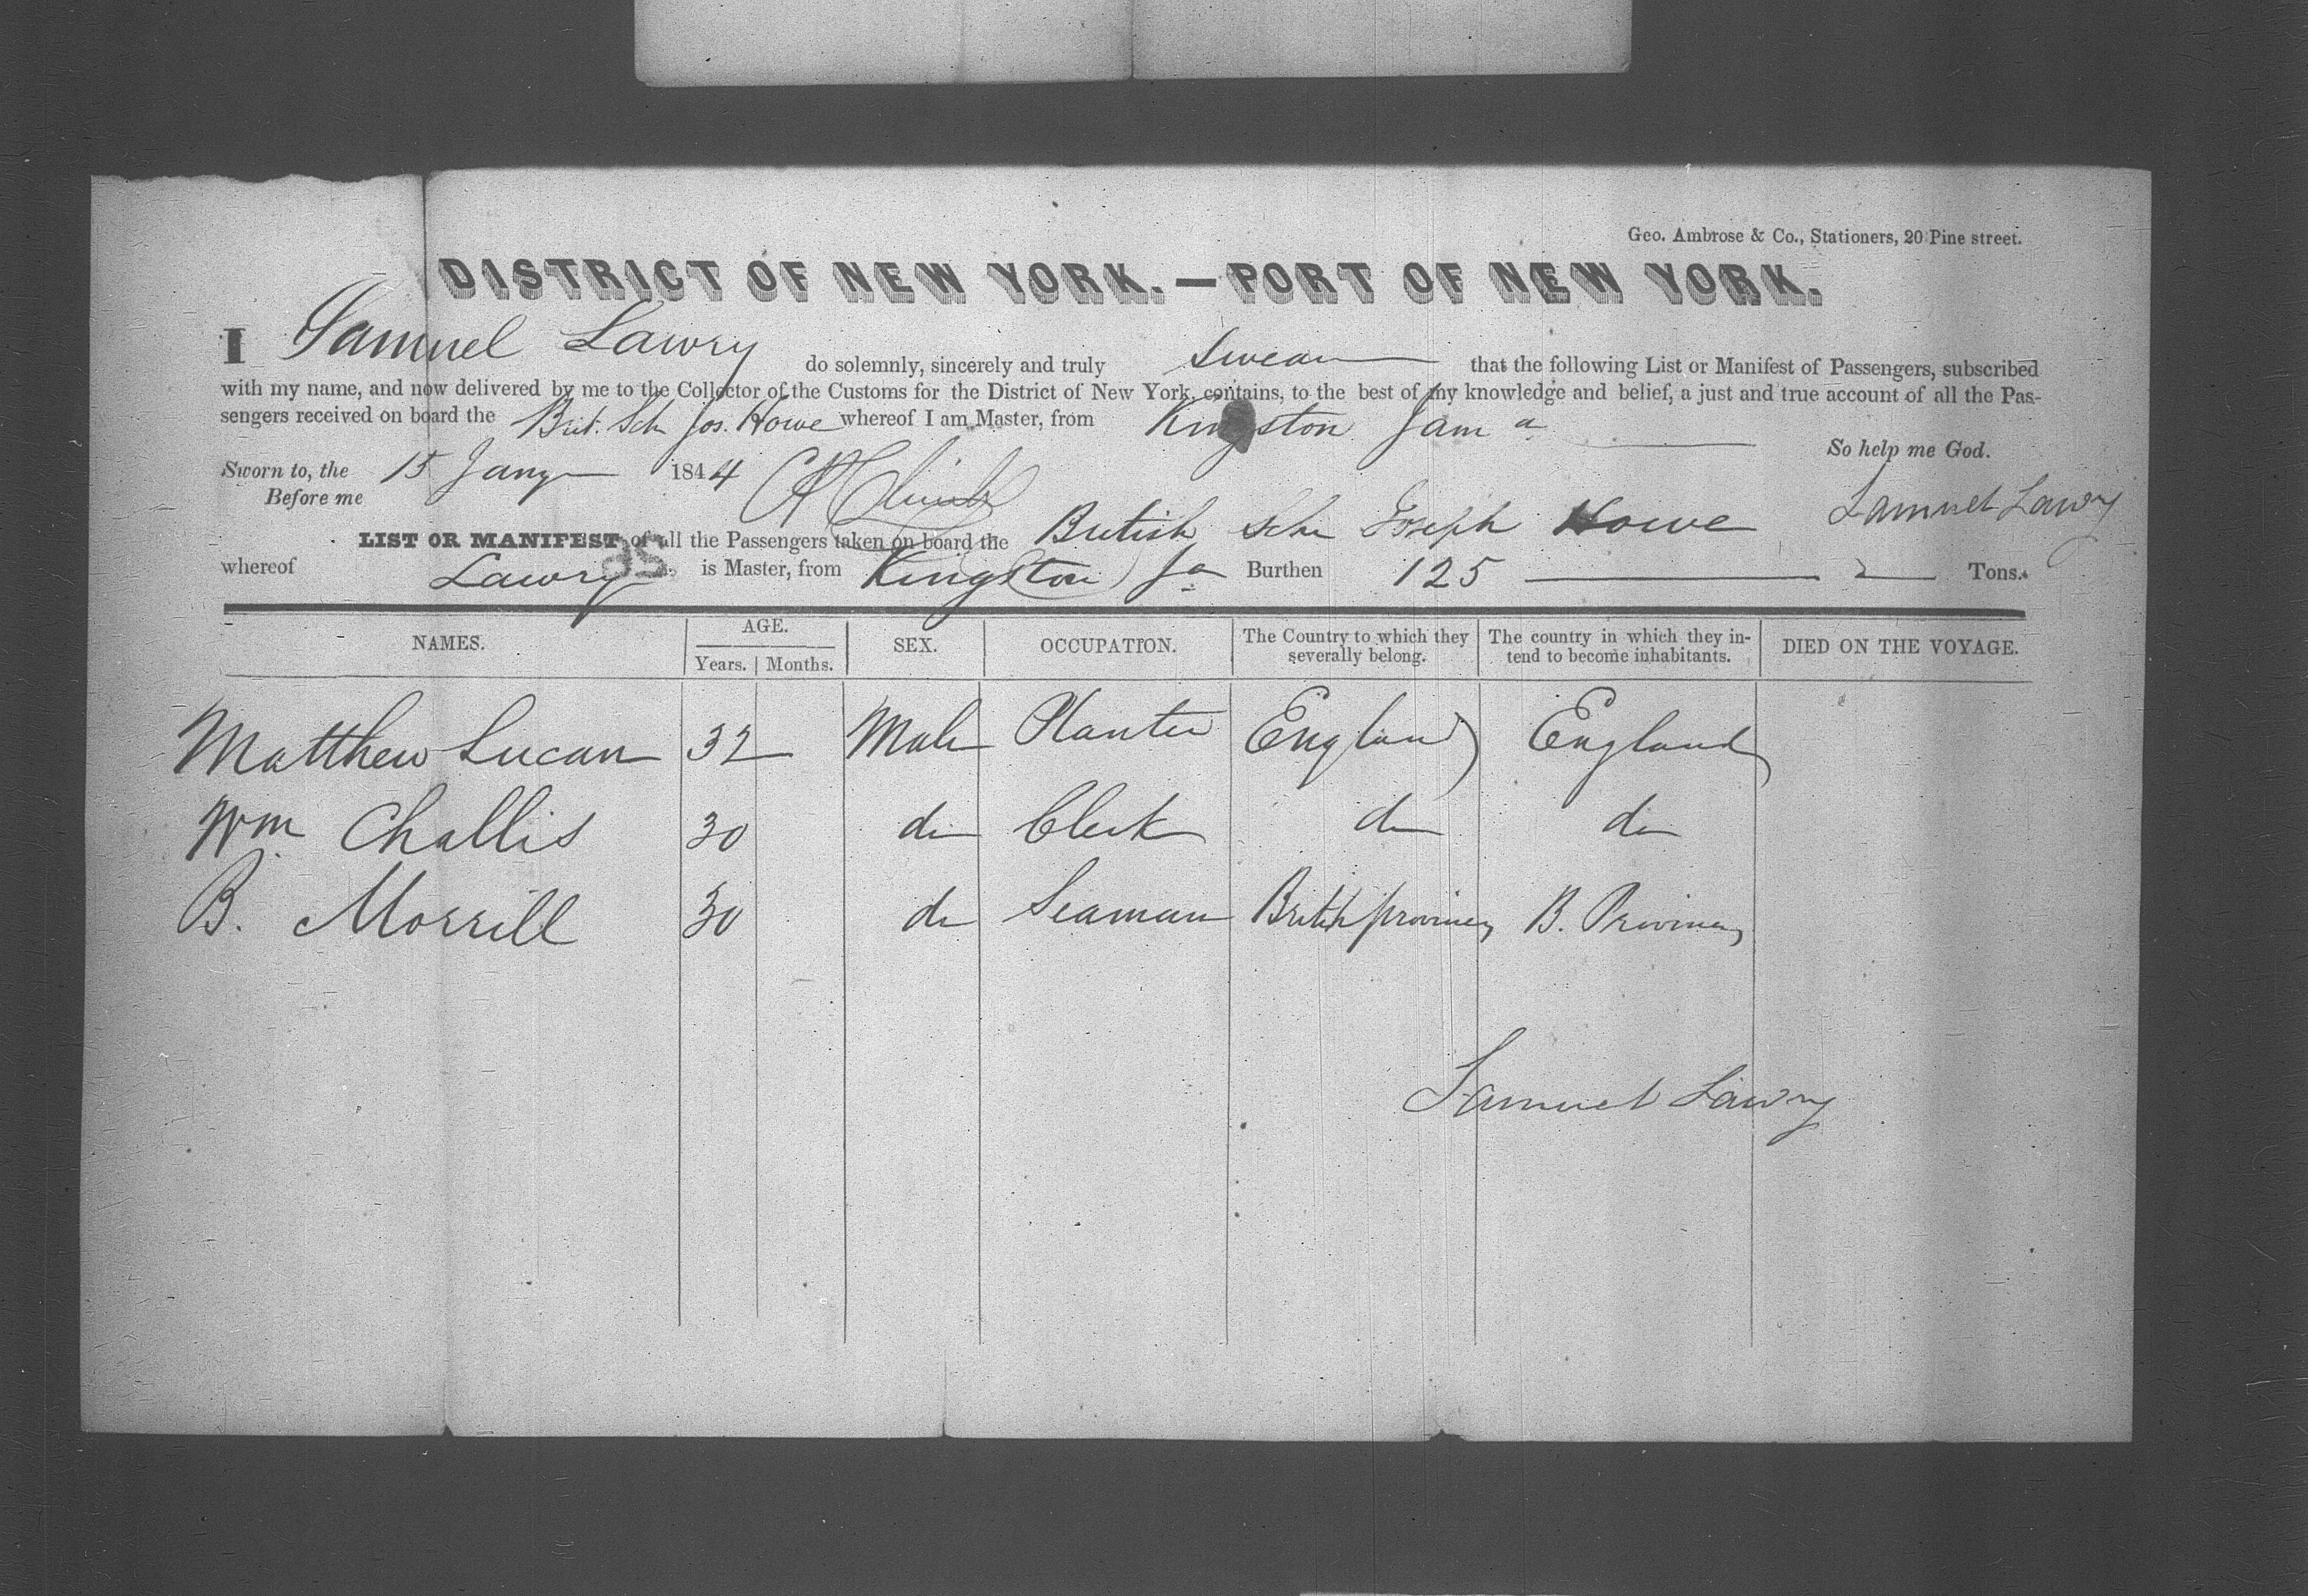 Geo. Ambrose & Co., Stationers, 20 Pine street.
DISTRICT OF NEW YORK.—PORT OF NEW YORK.
I Samuel Lawry do solemnly, sincerely and truly swear that the following List or Manifest of Passengers, subscribed
with my name, and now delivered by me to the Collector of the Customs for the District of New York, contains, to the best of my knowledge and belief, a just and true account of all the Pas-
sengers received on board the Brit. Sch Jos. Howe whereof I am Master, from Kingston Jam a
So help me God.
Sworn to, the 15 Jany 1844
Before me
Samuel Lawry
LIST OR MANIFEST of all the Passengers taken on board the British Schr Joseph Howe
whereof Lawry is Master, from Kingston Ja Burthen 125 Tons.
NAMES. AGE. SEX. OCCUPATION. The Country to which they severally belong. The country in which they in-tend to become inhabitants. DIED ON THE VOYAGE.
Years. Months.
Matthew Lucan 32 Male Planter England England
Wm Challis 30 do Clerk do do
B. Morrill 30 do Seaman British provinces B. Provinces
Samuel Lawry